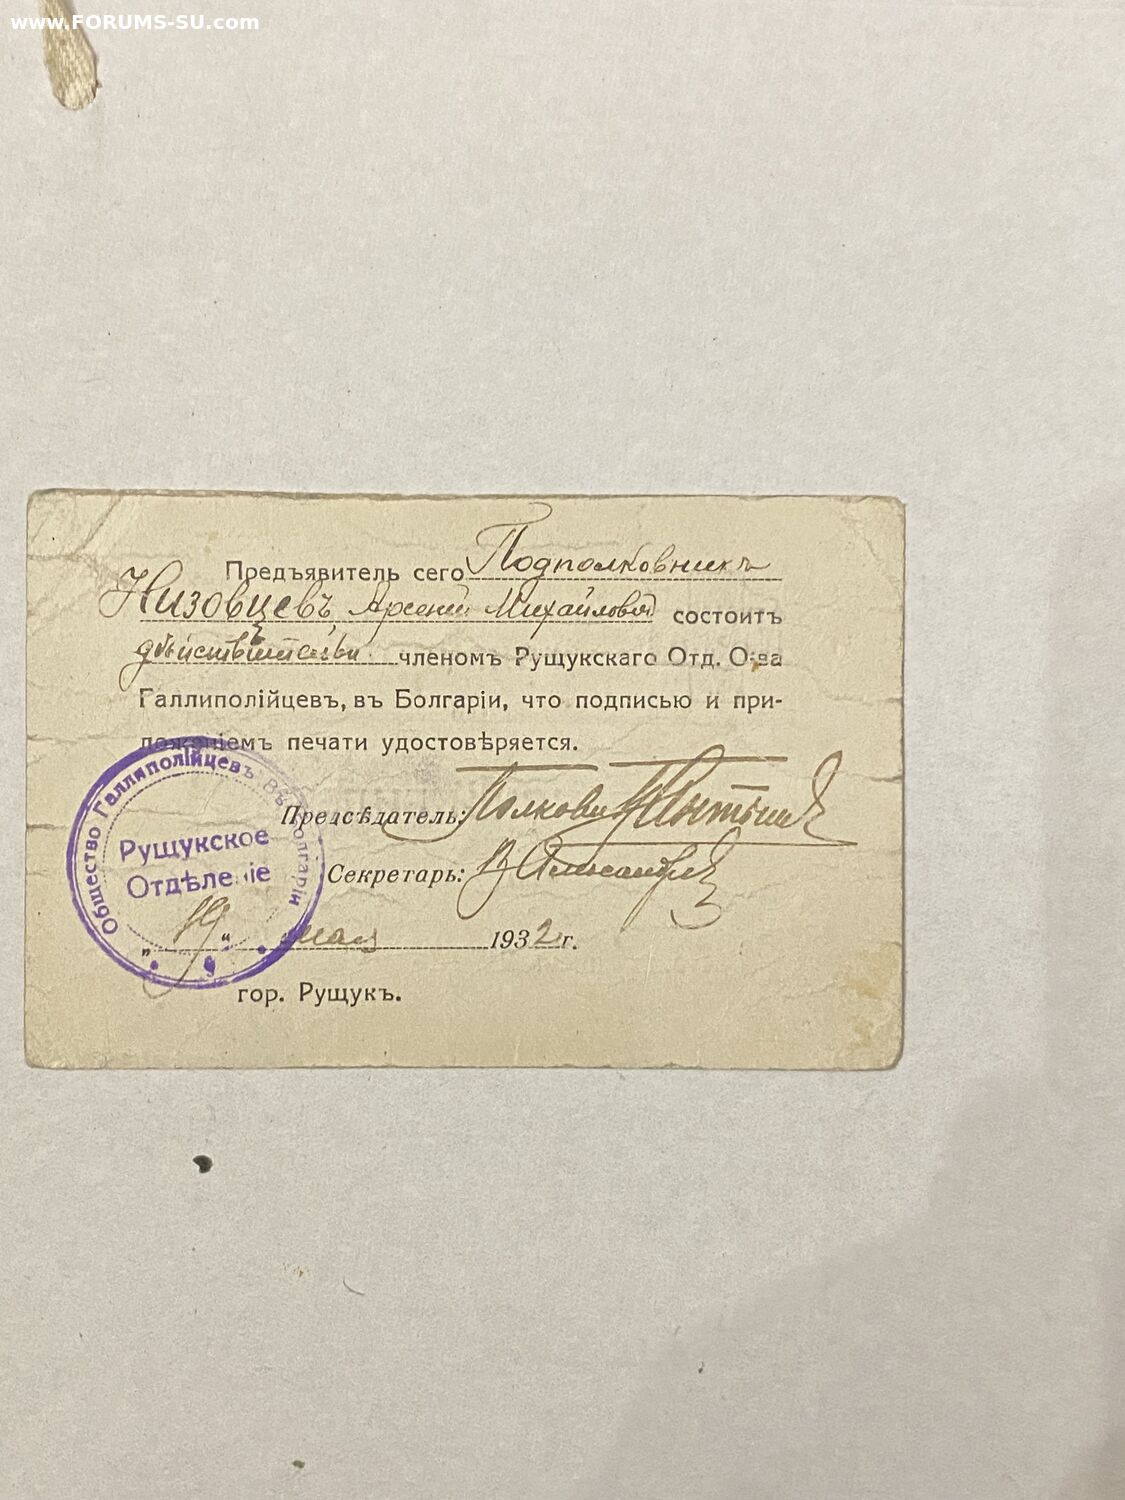 www.FORUMS-SU.com
Предъявитель сего Подполковникъ
Низовцевъ Арсений Михайлович состоитъ
членомъ Рущукскаго Отд. О-ва
Галлиполійцевъ, въ Болгаріи, что подписью и при-
ложеніемъ печати удостовѣряется.
Предсѣдатель: Полковник
Секретарь:
„19“ мая 1932 г.
гор. Рущукъ.
Общество Галлиполійцевъ Въ Болгаріи
Рущукское
Отдѣленіе